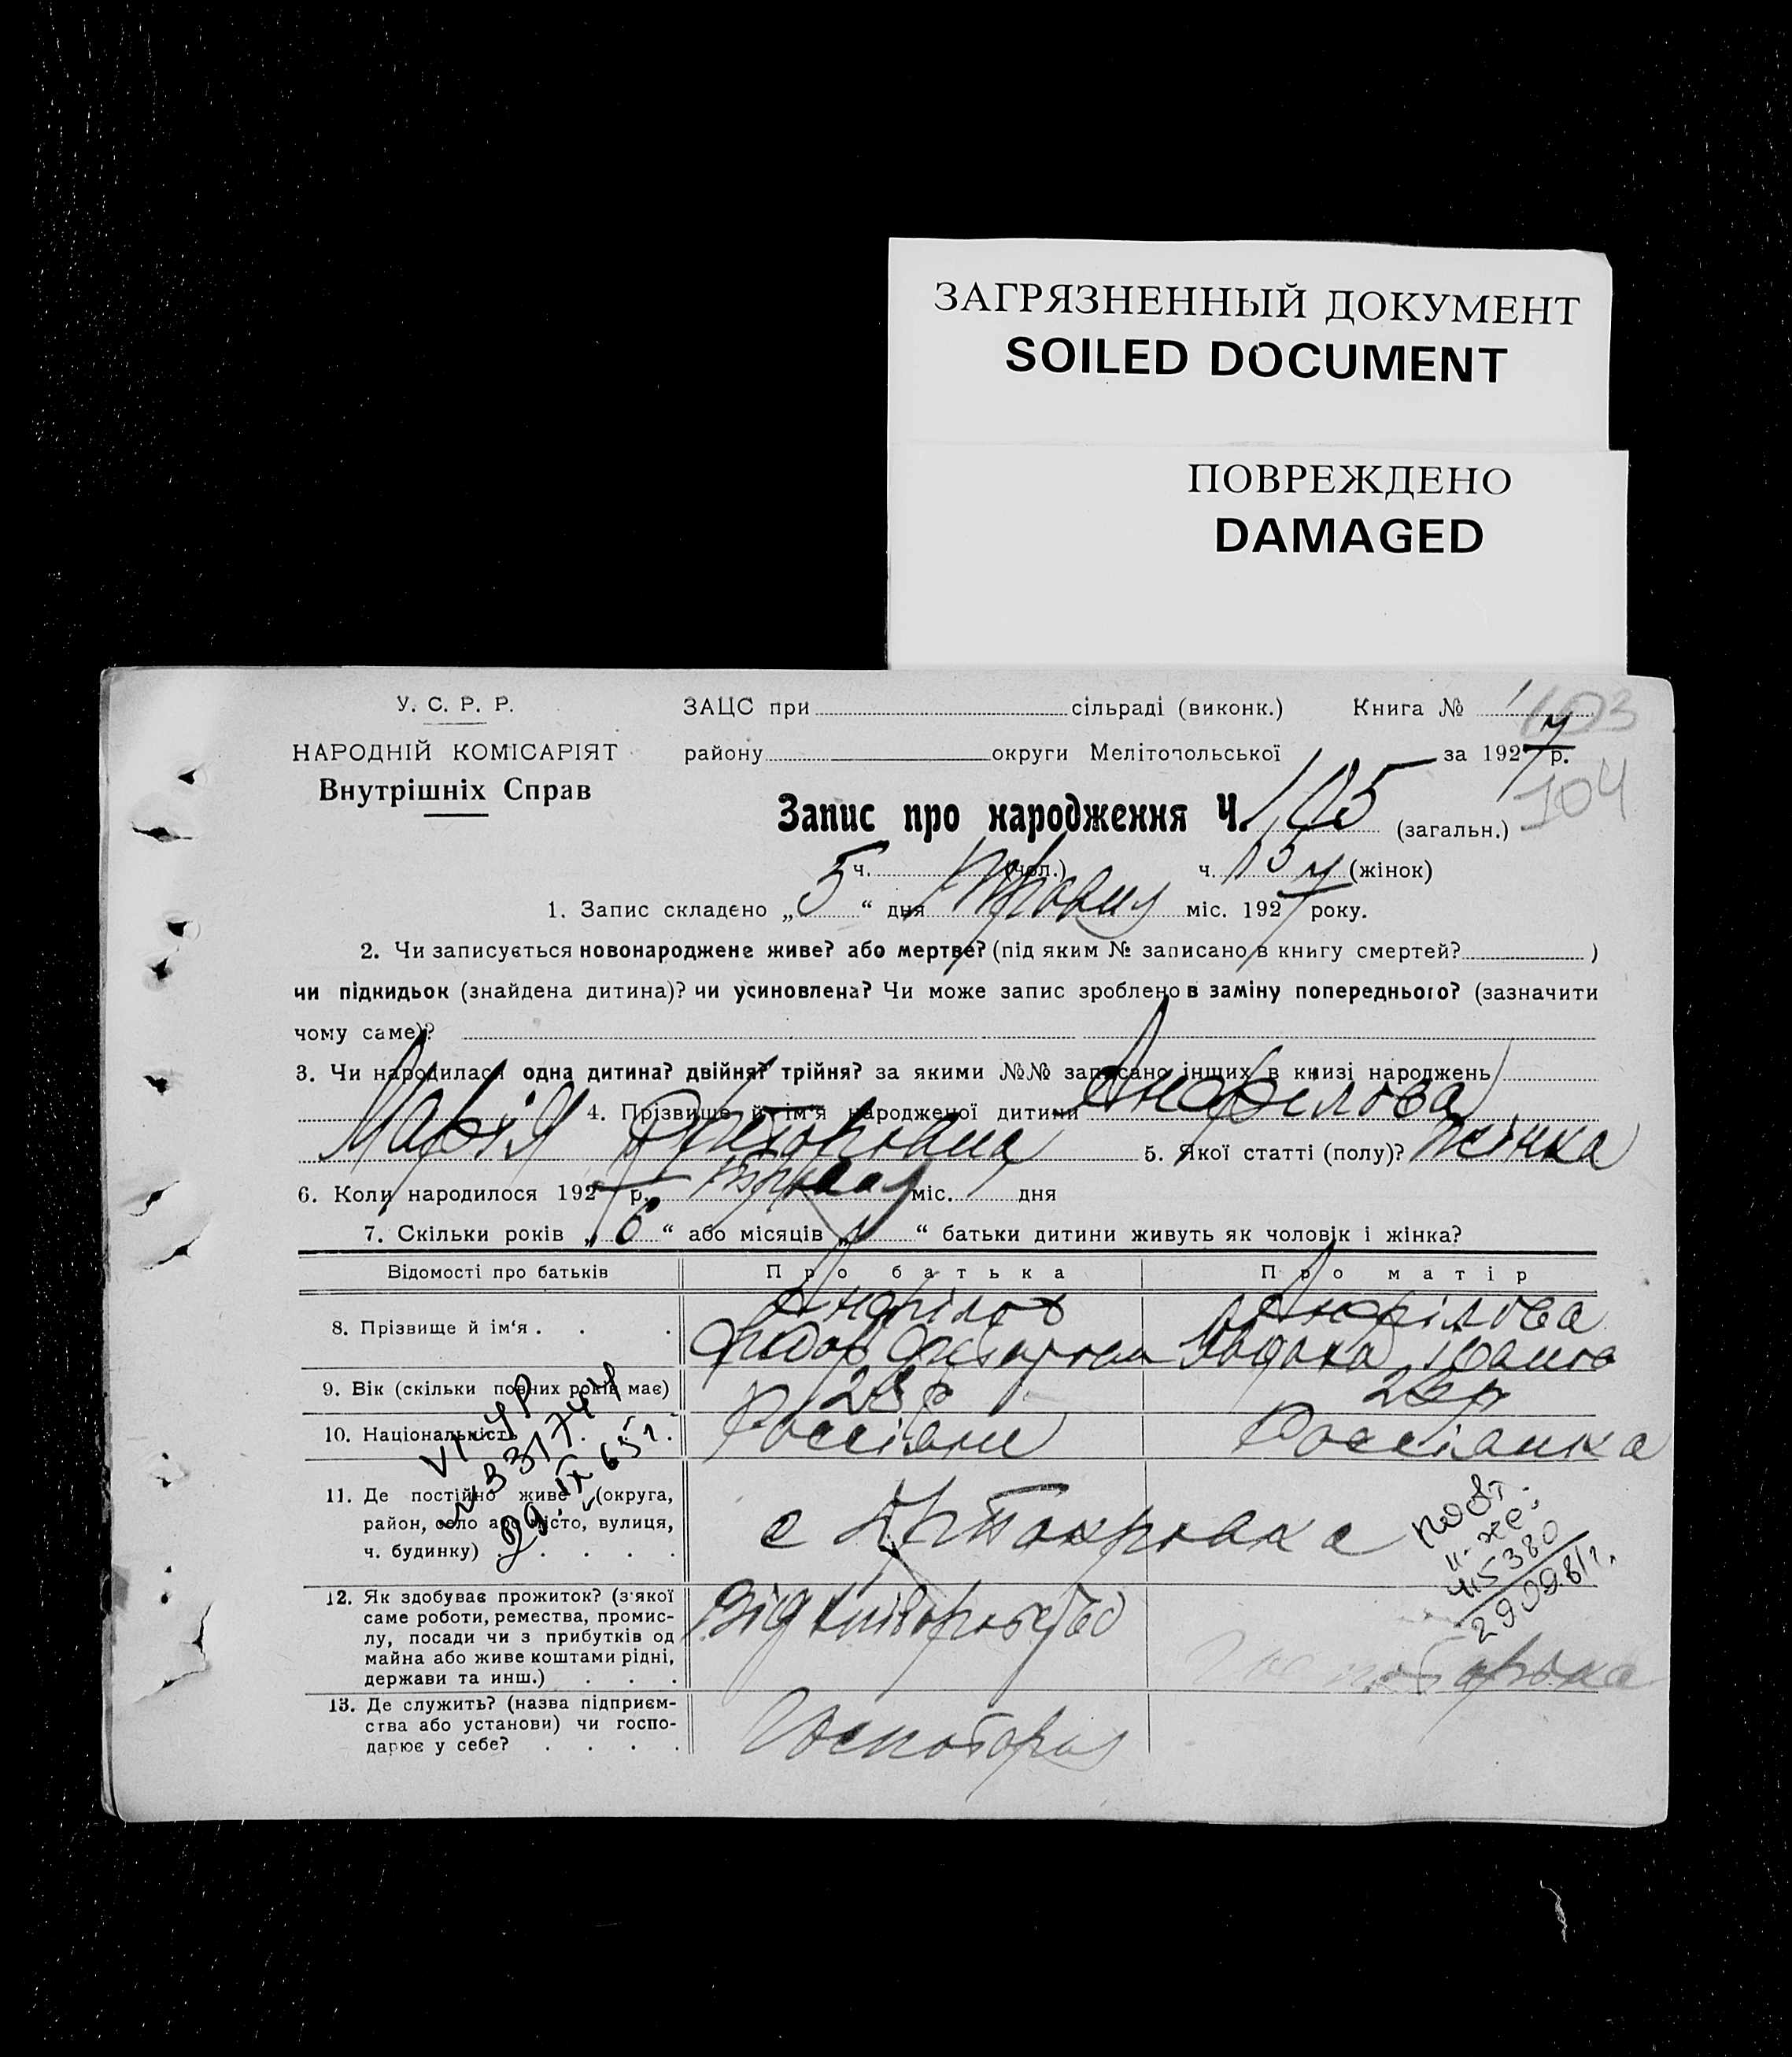 ЗАГРЯЗНЕННЫЙ ДОКУМЕНТ
SOILED DOCUMENT
ПОВРЕЖДЕНО
DAMAGED
У. С. Р. Р.
НАРОДНІЙ КОМІСАРІЯТ
Внутрішніх Справ
ЗАЦС при сільраді (виконк.) Книга №
103
району округи Мелітопольської за 1927 р.
104
Запис про народження Ч. 105 (загальн.)
ч. (чол.) ч. (жінок)
1. Запис складено „5“ дня Травня міс. 1927 року.
2. Чи записується новонароджене живе? або мертве? (під яким № записано в книгу смертей? )
чи підкидьок (знайдена дитина)? чи усиновлена? Чи може запис зроблено в заміну попереднього? (зазначити
чому саме)?
3. Чи народилася одна дитина? двійня? трійня? за якими №№ записано інших в книзі народжень
4. Прізвище й ім‘я народженої дитини Анфілова
Марія 5. Якої статті (полу)? жінка
6. Коли народилося 1927 р. міс. дня
7. Скільки років „6“ або місяців „ “ батьки дитини живуть як чоловік і жінка?
Відомості про батьків Про батька Про матір
8. Прізвище й ім‘я . . . Анфілов Анфілова
9. Вік (скільки повних років має)
10. Національність Россіяни Россіянка
VI-УР
№ 331744
29. IX 65 г.
11. Де постійно живе (округа,
район, село або місто, вулиця,
ч. будинку) . . . . .
с
повт.
415380
290981г.
12. Як здобуває прожиток? (з‘якої
саме роботи, ремества, промис-
лу, посади чи з прибутків од
майна або живе коштами рідні,
держави та инш.) . . .
Від
13. Де служить? (назва підприєм-
ства або установи) чи госпо-
дарює у себе? . . . .